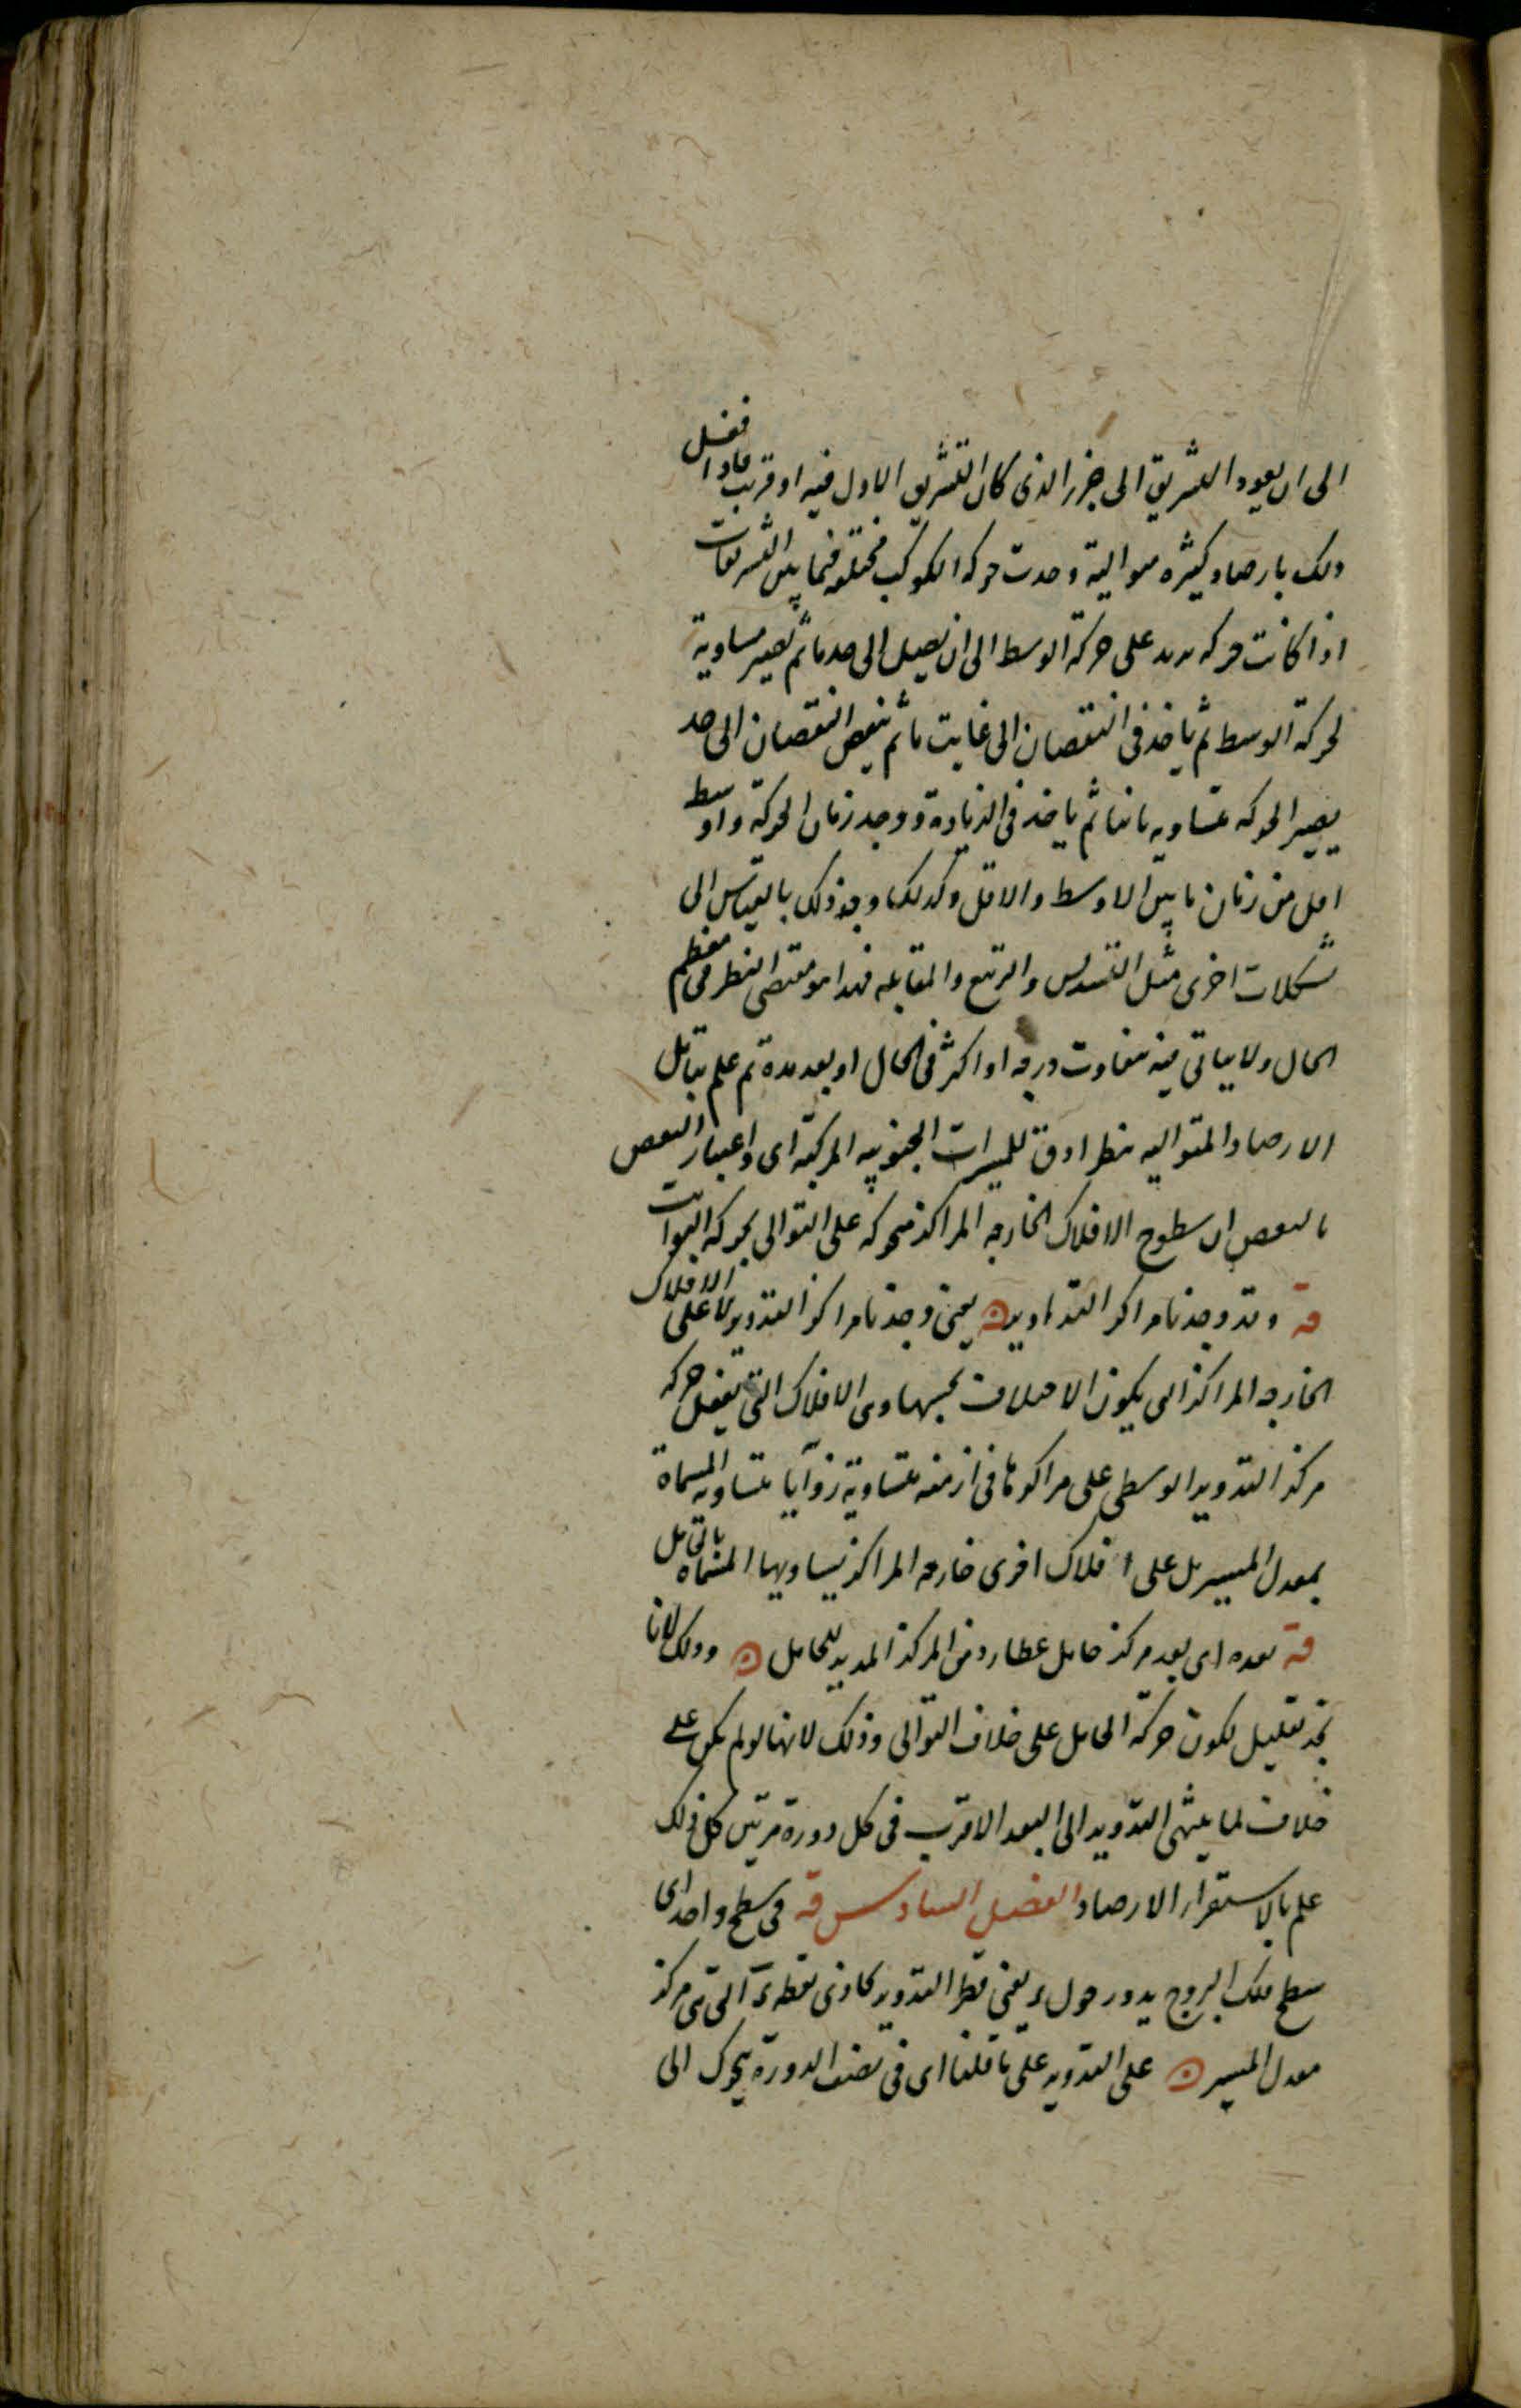 الى ان يعود التشريق الى جزء الذى كان التشريق الاول فيه او قريب فاذا فعل
ذلك بارصاد كثيره متوالية وجدت حركة الكوكب مختلفه فيما بين التشريقات
اذا كانت حركه تزيد على حركة الوسط الى ان يصل الى حد ما ثم يصير مساوية
لحركة الوسط ثم ياخذ فى النقصان الى غايت ما ثم ينقص النقصان الى حد
يصير الحركه متساويه ثانيا ثم ياخذ فى الزيادة ووجد زمان الحركة واوسط
اقل من زمان ما بين الاوسط والاقل وكذلك وجد ذلك بالقياس الى
تشكلات اخرى مثل التسديس والتربيع والمقابله فهذا هو مقتضى النظر فى معظم
الحال ولا يباتى فيه بتفاوت درجه او اكثر فى الحال او بعد مدة ثم علم بتامل
الارصاد المتواليه بنظر ادق للمسيرات الجزئيه المركبة اى واعتبار البعض
بالبعض ان سطوح الافلاك الخارجه المراكز متحركه على التوالى بحركه الثوابت
قه وقد وجدنا مراكز التداوير يعنى وجدنا مراكز التدوير لا على الافلاك
الخارجه المراكز التى يكون الاختلاف بحسبها وهى الافلاك التى تفعل حركه
مركز التدوير الوسطى على مراكزها فى ازمنه متساوية زوايا متساويه المسماة
بمعدل المسير بل على افلاك اخرى خارجه المراكز يساويها المسماه بالحامل
قه بعده اى بعد مركز حامل عطارد من المركز المدير للحامل وذلك لانا
نجد تعليل لكون حركة الحامل على خلاف التوالى وذلك لانها لو لم يكن على
خلاف لما ينتهى التدوير الى البعد الاقرب فى كل دورة مرتين كل ذلك
علم بالاستقرار الارصاد الفصل السادس قه فى سطح واحد اى
سطح فلك البروج يدور حول ء يعنى قطر التدوير يحاذى نقطه ء التى هى مركز
معدل المسير على التدوير على ما قلنا اى فى نصف الدورة يتحرك الى